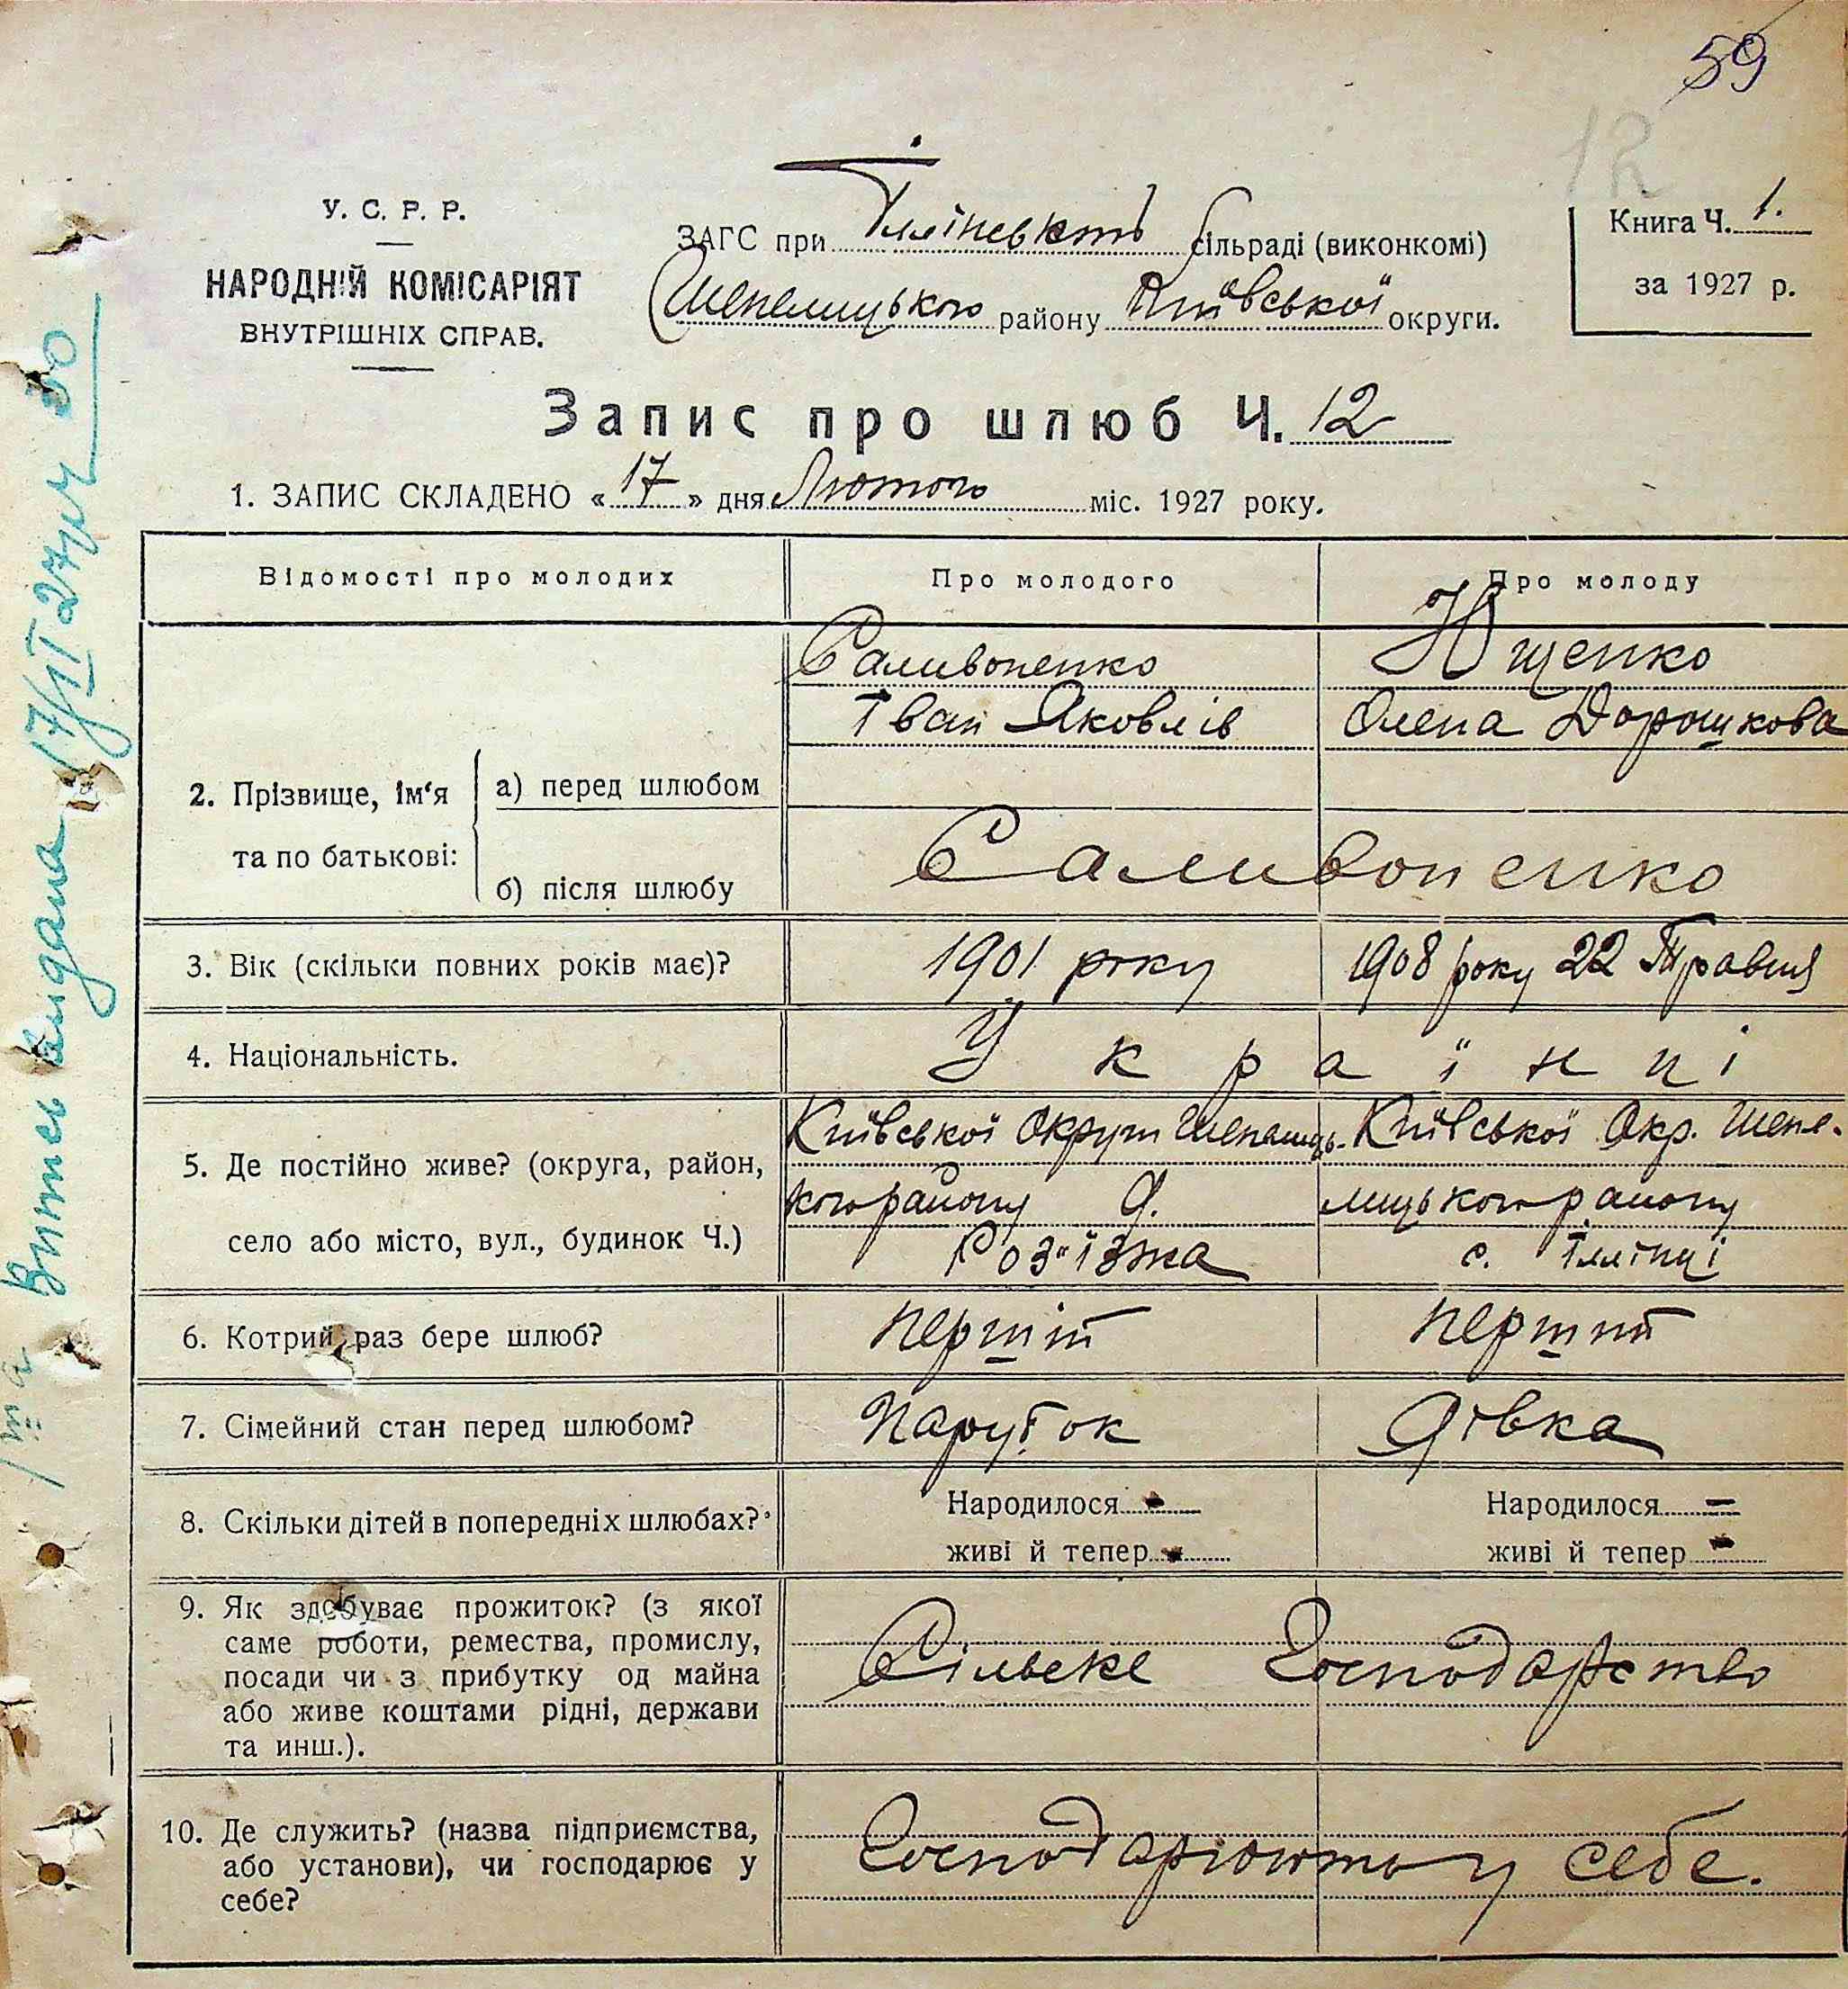 59
12
У. С. Р. Р.
НАРОДНІЙ КОМІСАРІЯТ
ВНУТРІШНІХ СПРАВ.
ЗАГС при Іллінській сільраді (виконкомі)
Шепелицького району Київської округи.
Книга Ч. 1.
за 1927 р.
Запис про шлюб Ч. 12
1. ЗАПИС СКЛАДЕНО «17» дня Лютого міс. 1927 року.
Відомості про молодих
Про молодого
Про молоду
2. Прізвище, ім‘я та по батькові:
а) перед шлюбом
Саливоненко
Іван Яковлів
Ющенко
Олена Дорошкова
б) після шлюбу
Саливоненко
3. Вік (скільки повних років має)?
1901 року
1908 року 22 Травня
4. Національність.
Українці
5. Де постійно живе? (округа, район,
село або місто, вул., будинок Ч.)
Київської Округи Шепелиць-
кого району д.
Роз"їзжа
Київської Окр. Шепе-
лицького району
с. Іллінці
6. Котрий раз бере шлюб?
перший
перший
7. Сімейний стан перед шлюбом?
Парубок
Дівка
8. Скільки дітей в попередніх шлюбах?
Народилося -
живі й тепер -
Народилося =
живі й тепер -
9. Як здобуває прожиток? (з якої
саме роботи, ремества, промислу,
посади чи з прибутку од майна
або живе коштами рідні, держави
та инш.).
Сільське Господарство
10. Де служить? (назва підприємства,
або установи), чи господарює у
себе?
Господарюють у себе.
Витяг видана 17/II 27р. № 30